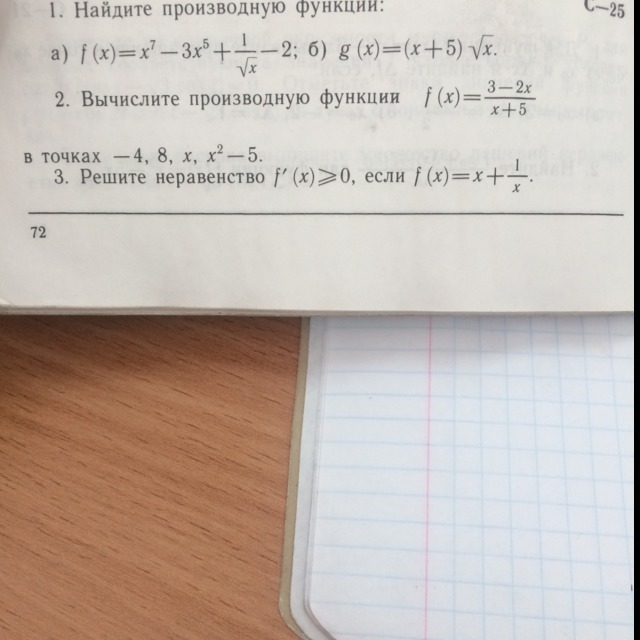 1. Найдите производную функции: С—25
а) f (x)=x⁷—3x⁵+1/√x—2; б) g (x)=(x+5) √x.
2. Вычислите производную функции f (x)=3—2x/x+5
в точках —4, 8, x, x²—5.
3. Решите неравенство f′ (x)⩾0, если f (x)=x+—/x.
72